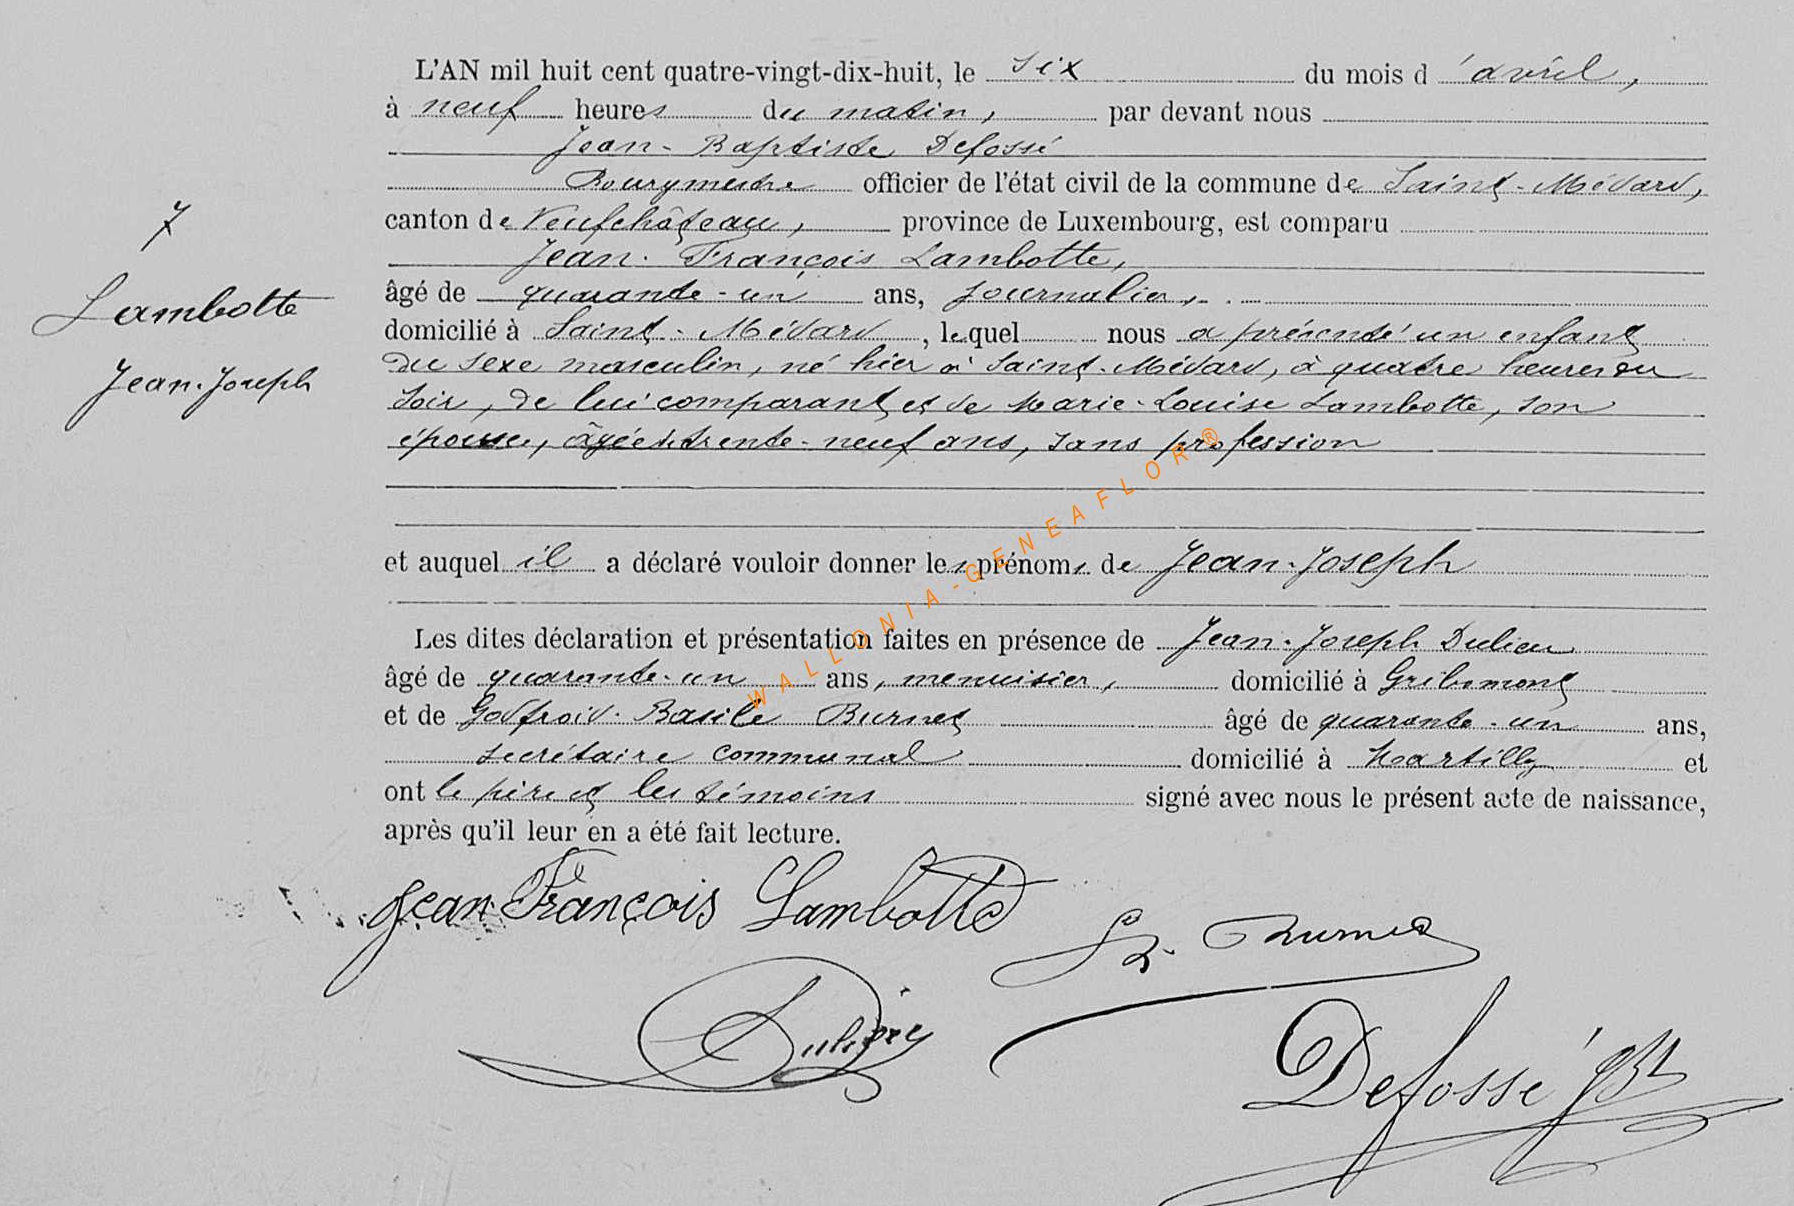 L'AN mil huit cent quatre-vingt-dix-huit, le six du mois d'avril,
à neuf heures du matin, par devant nous
Jean-Baptiste Defossé
Bourgmestre officier de l'état civil de la commune de Saint-Médard,
canton de Neufchâteau, province de Luxembourg, est comparu
Jean-François Lambotte,
âgé de quarante-un ans, journalier,
domicilié à Saint-Médard, lequel nous a présenté un enfant
du sexe masculin, né hier à Saint-Médard, à quatre heures du
soir, de lui comparant et de Marie-Louise Lambotte, son
épouse, âgée de trente-neuf ans, sans profession
et auquel il a déclaré vouloir donner les prénoms de Jean-Joseph
Les dites déclaration et présentation faites en présence de Jean-Joseph Dulieu
âgé de quarante-un ans, menuisier, domicilié à Gribomont
et de Godfroid-Basile Burnet âgé de quarante-un ans,
secrétaire communal domicilié à Martilly et
ont le père et les témoins signé avec nous le présent acte de naissance,
après qu'il leur en a été fait lecture.
7
Lambotte
Jean-Joseph
Jean François Lambotte
Burnet
Dulieu
Defossé JBt
WALLONIA-GENEAFLOR®